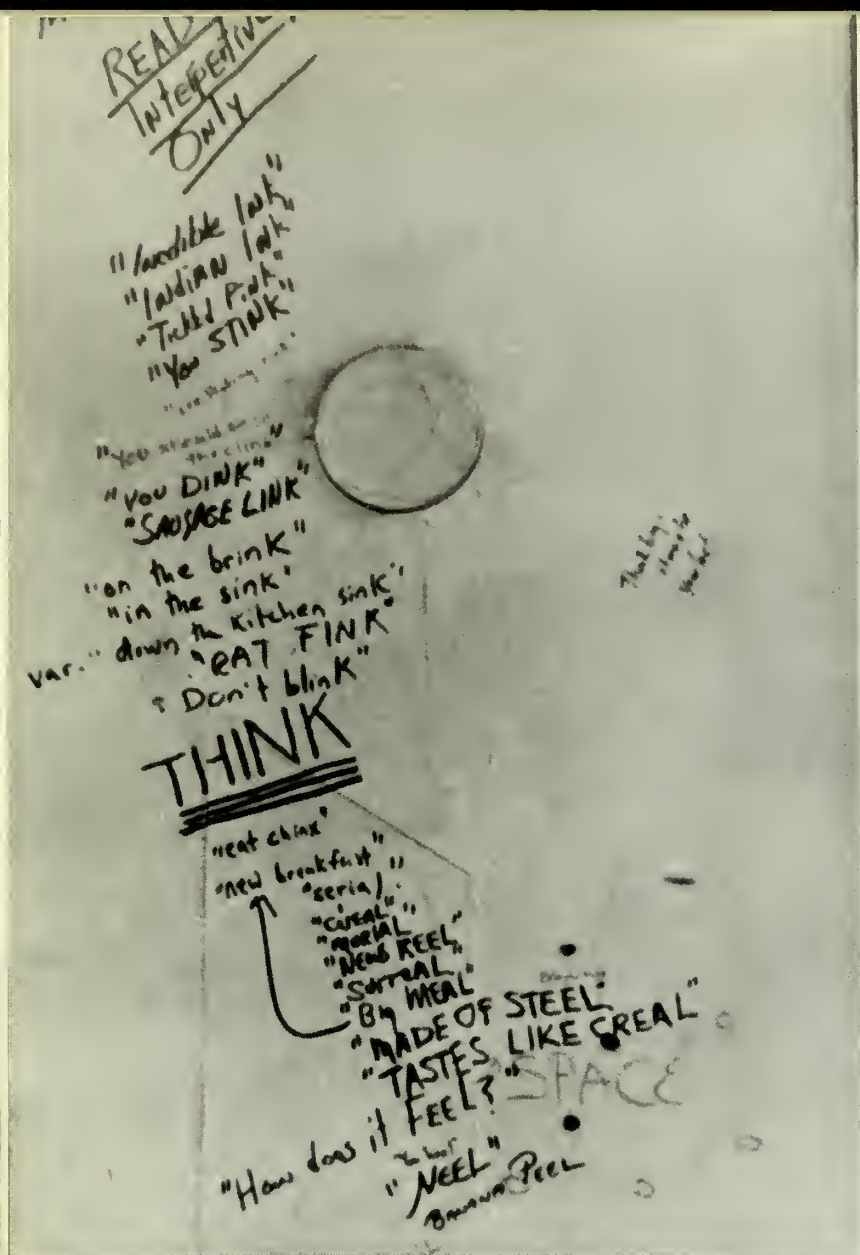 READ
INTEPETIVE
ONLY
"Inedible Ink"
"INDIAN INK"
"Tickled Pink"
"You STINK"
"You should be in
the clink"
"You DINK"
"SAUSAGE LINK"
"on the brink"
"in the sink"
var. "down the kitchen sink"
"RAT FINK"
"Don't blink"
THINK
"eat chinx"
"new breakfast"
"serial"
"CEREAL"
"NEWS REEL"
"SURREAL"
"Big MEAL"
"MADE OF STEEL"
"TASTES LIKE CREAL"
SPACE
"How does it FEEL?"
"NEEL"
BANANA PEEL